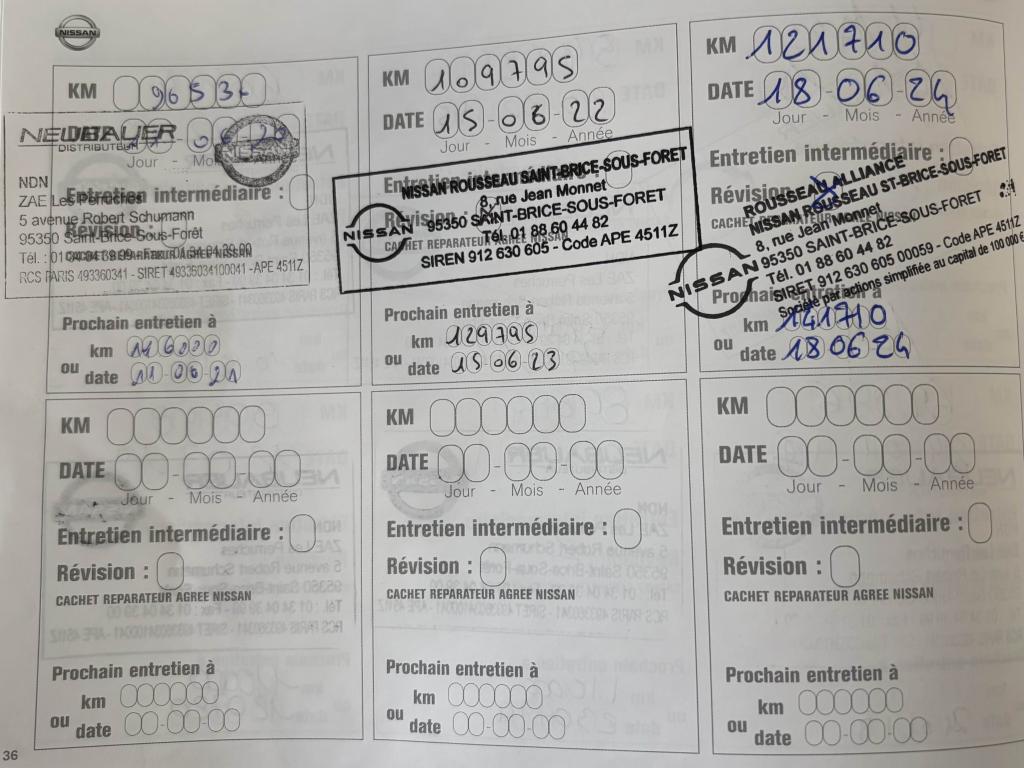 NISSAN
KM 96532
NEUBAUER
DISTRIBUTEUR
Jour - Mois
Entretien intermédiaire :
NDN
ZAE Les Perruches
5 avenue Robert Schumann
Révision :
95350 Saint-Brice-Sous-Forêt
RCS PARIS 493360341 - SIRET 49336034100041 - APE 4511Z
Prochain entretien à
km 116000
ou
date 11-06-21
KM 109795
DATE 15-06-22
Jour - Mois - Année
Entretien intermédiaire
NISSAN ROUSSEAU SAINT-BRICE-SOUS-FORET
8, rue Jean Monnet
Révision :
95350 SAINT-BRICE-SOUS-FORET
NISSAN
Tél. 01 88 60 44 82
CACHET REPARATEUR AGREE NISSAN
SIREN 912 630 605 - Code APE 4511Z
Prochain entretien à
km 129795
ou
date 15-06-23
KM 121710
DATE 18-06-24
Jour - Mois - Année
Entretien intermédiaire :
Révision
ROUSSEAU ALLIANCE
NISSAN ROUSSEAU ST-BRICE-SOUS-FORET
8, rue Jean Monnet
95350 SAINT-BRICE-SOUS-FORET
NISSAN
Tél. 01 88 60 44 82
SIRET 912 630 605 00059 - Code APE 4511Z
Société par actions simplifiée au capital de 100 000 €
Prochain entretien à
km 141710
ou
date 180624
KM
DATE
Jour - Mois - Année
Entretien intermédiaire :
Révision :
CACHET REPARATEUR AGREE NISSAN
Prochain entretien à
km
ou
date
KM
DATE
Jour - Mois - Année
Entretien intermédiaire :
Révision :
CACHET REPARATEUR AGREE NISSAN
Prochain entretien à
km
ou
date
KM
DATE
Jour - Mois - Année
Entretien intermédiaire :
Révision :
CACHET REPARATEUR AGREE NISSAN
Prochain entretien à
km
ou
date
36